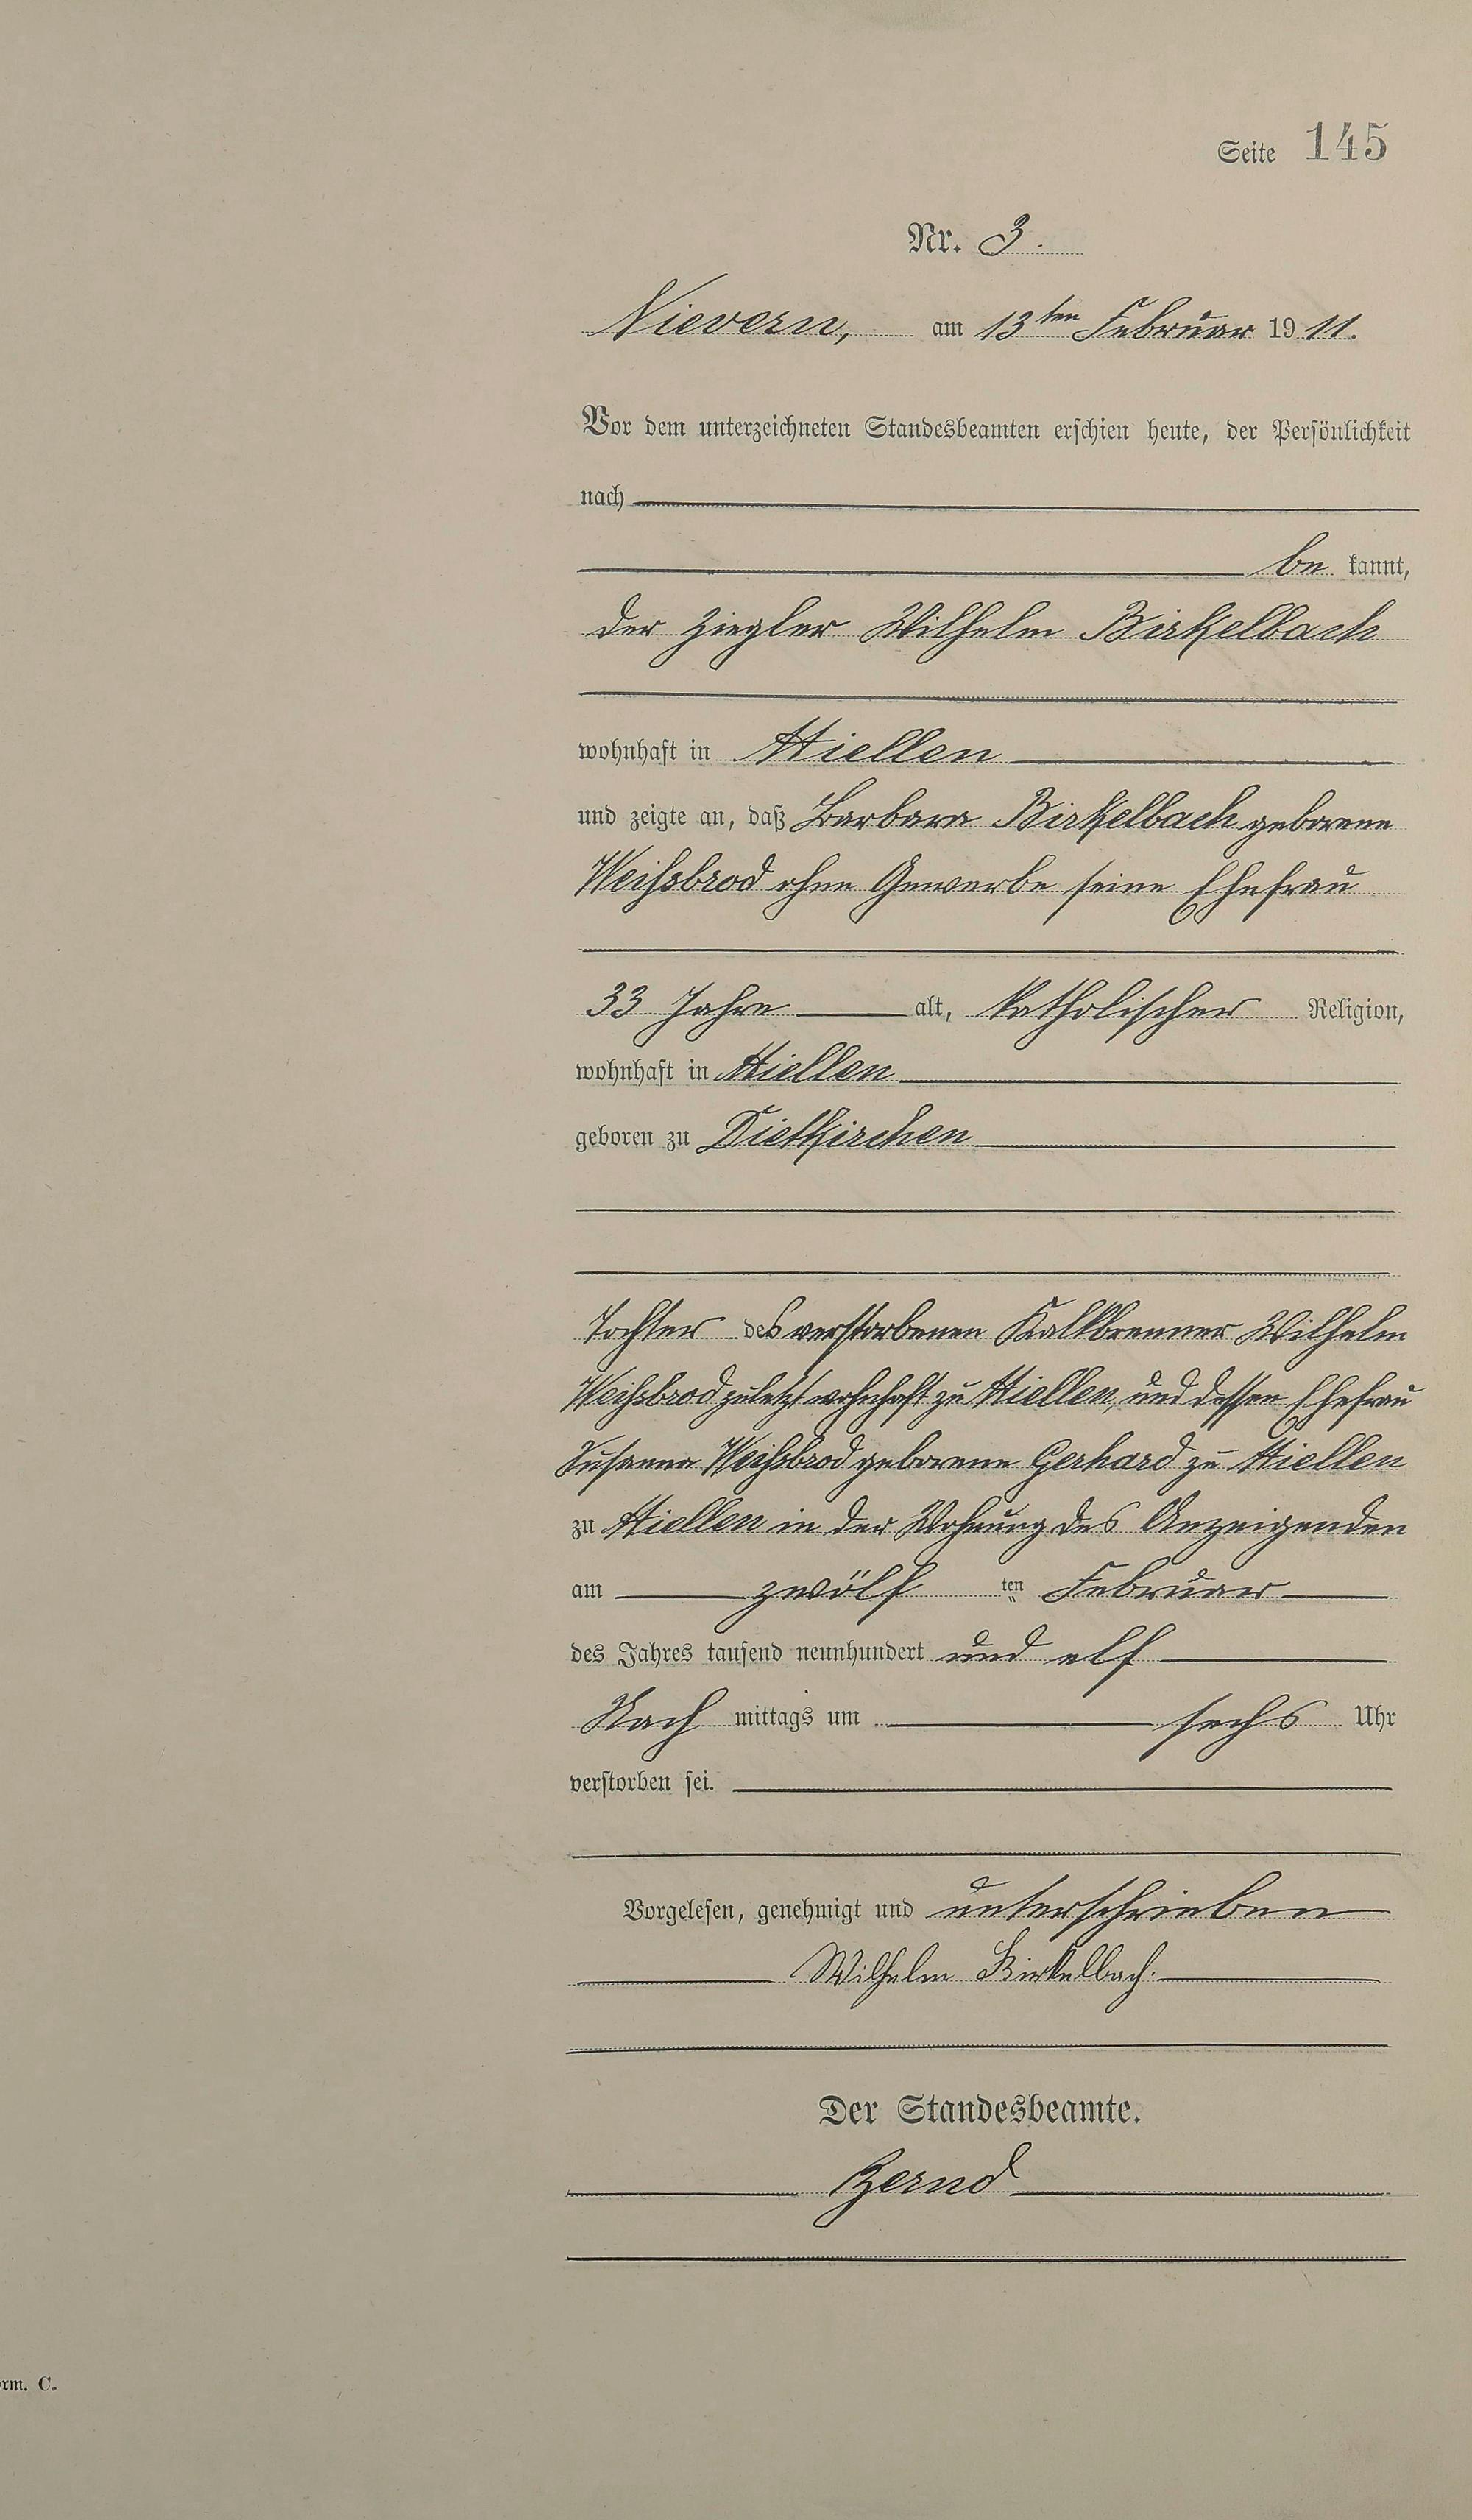 Seite 145
Nr. 3.
Nievern, am 13ten Februar 1911.
Vor dem unterzeichneten Standesbeamten erschien heute, der Persönlichkeit
nach
be kannt,
der Ziegler Wilhelm Birkelbach
wohnhaft in Miellen
und zeigte an, daß Barbara Birkelbach geborene
Weißbrod ohne Gewerbe seine Ehefrau
33 Jahre alt, katholischer Religion,
wohnhaft in Miellen
geboren zu Dietkirchen
Tochter des verstorbenen Kalkbrenner Wilhelm
Weißbrod zuletzt wohnhaft zu Miellen, und dessen Ehefrau
Susanna Weißbrod geborene Gerhard zu Miellen
zu Miellen in der Wohnung des Anzeigenden
am zwölf ten Februar
des Jahres tausend neunhundert und elf
Nach mittags um sechs Uhr
verstorben sei.
Vorgelesen, genehmigt und unterschrieben
Wilhelm Birkelbach.
Der Standesbeamte.
Zernd
rm. C.